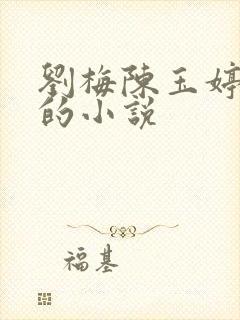 劉梅陳玉婷
的小說
福基